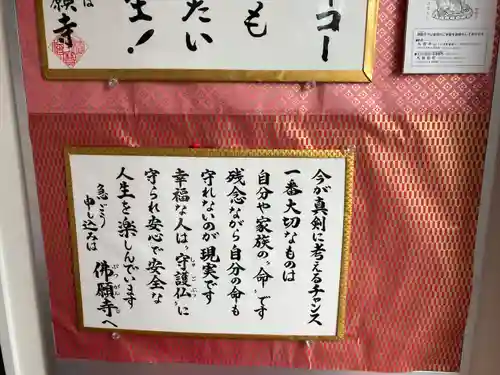 コー
も
たい
生!
は
願寺
今が真剣に考えるチャンス
一番大切なものは
自分や家族の〝命〟です
残念ながら自分の命も
守れないのが現実です
幸福な人は〝守護仏〟に
しゅごぶつ
守られ安心で安全な
人生を楽しんでいます
急ごう
申し込みは
佛願寺へ
ぶつがんじ